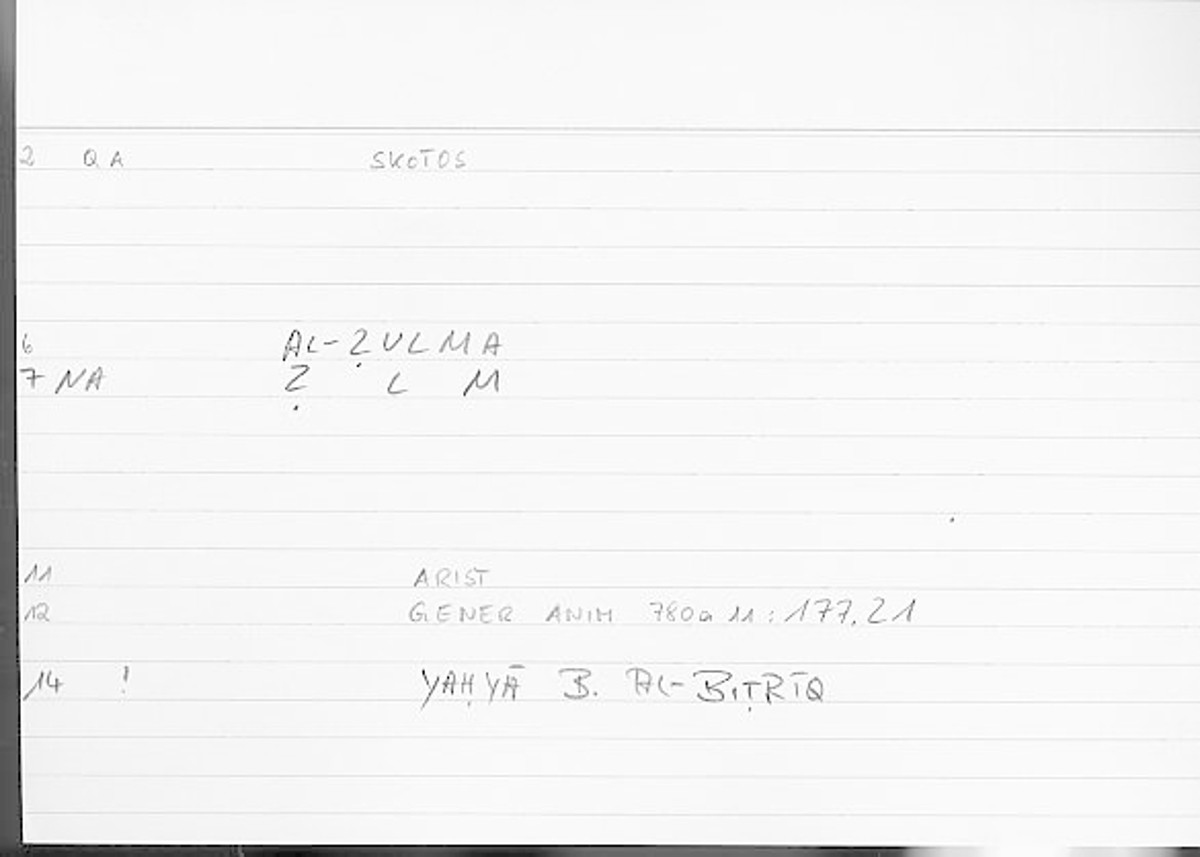 2 QA SKOTOS
6 AL-ẒULMA
7 NA Ẓ L M
11 ARIST
12 GENER ANIM 780a 11 : 177.21
14 ! YAḤYĀ B. AL-BIṬRĪQ